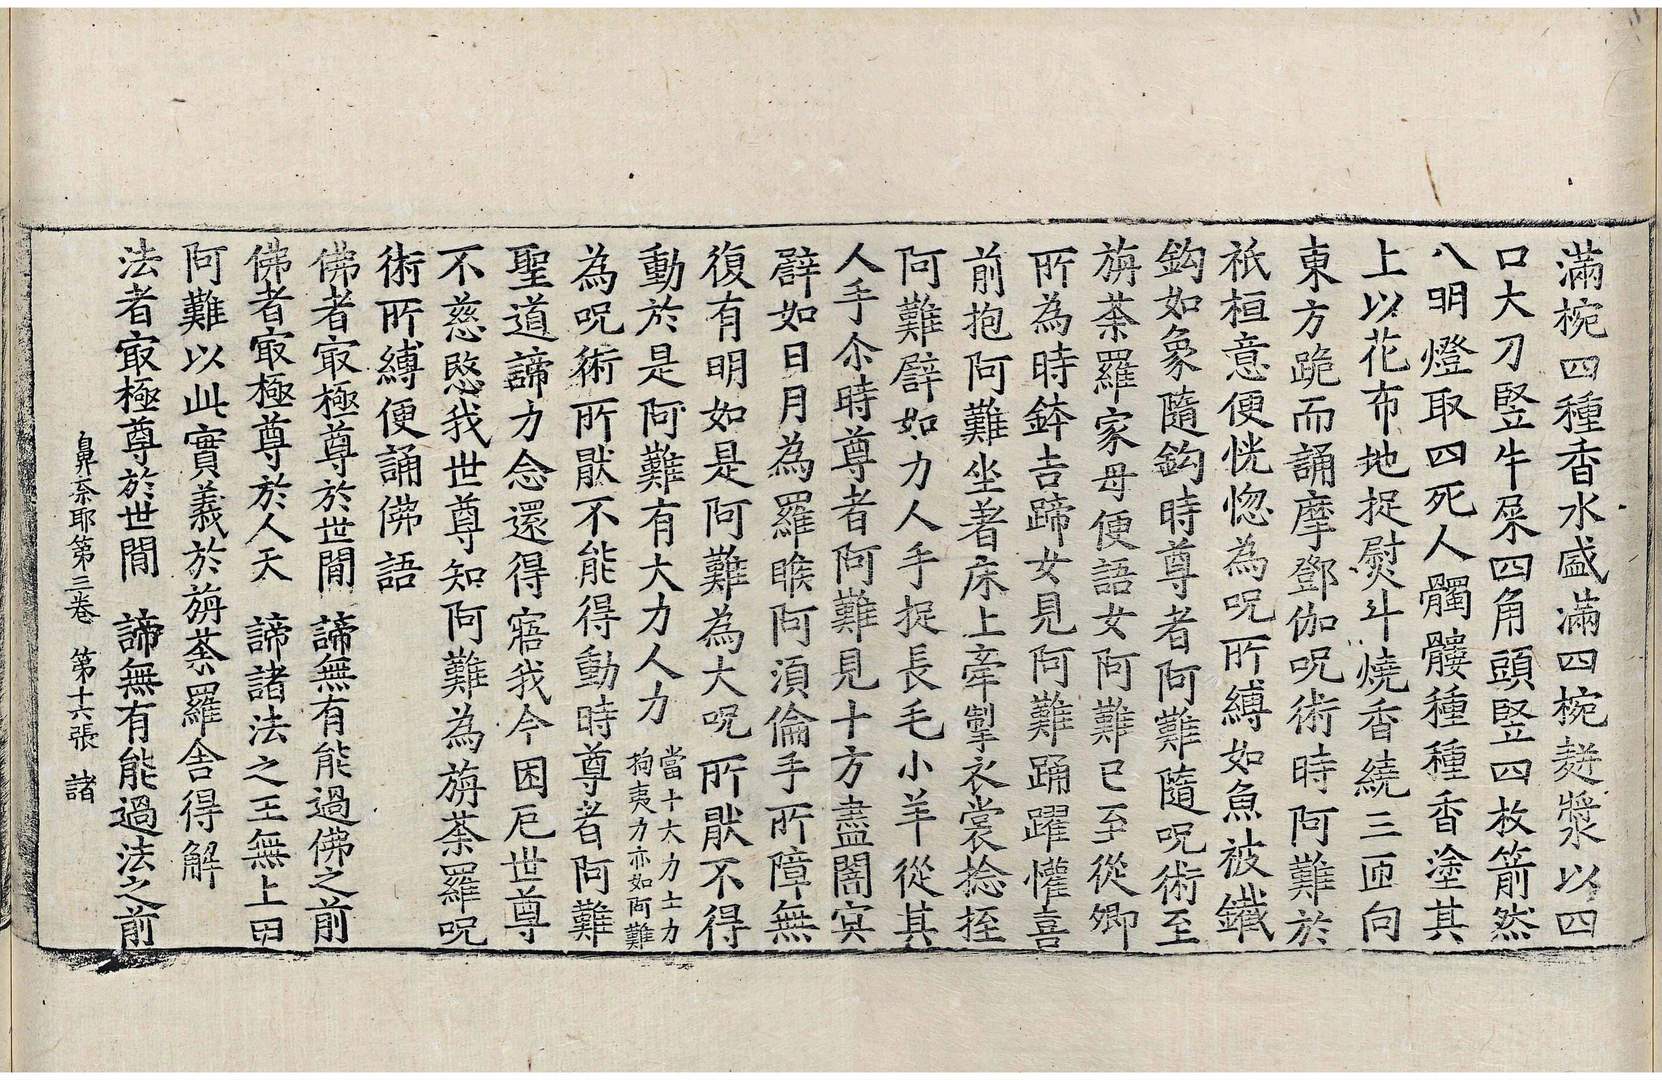 滿椀四種香水盛滿四椀麨漿以四
口大刀竪牛屎四角頭竪四枚箭然
八明燈取四死人髑髏種種香塗其
上以花布地捉熨斗燒香繞三匝向
東方跪而誦摩鄧伽呪術時阿難於
祇桓意便恍惚為呪所縛如魚被鐵
鈎如象隨鈎時尊者阿難隨呪術至
旃荼羅家母便語女阿難已至從卿
所為時鉢吉蹄女見阿難踊躍懽喜
前抱阿難坐著床上牽掣衣裳捻挃
阿難譬如力人手捉長毛小羊從其
人手尒時尊者阿難見十方盡闇冥
譬如日月為羅睺阿須倫手所障無
復有明如是阿難為大呪所猒不得
動於是阿難有大力人力當十大力士力狗夷力亦如阿難
為呪術所猒不能得動時尊者阿難
聖道諦力念還得寤我今困厄世尊
不慈愍我世尊知阿難為旃荼羅呪
術所縛便誦佛語
佛者㝡極尊於世間　諦無有能過佛之前
佛者㝡極尊於人天　諦諸法之王無上曰
阿難以此實義於旃荼羅舍得解
法者㝡極尊於世間　諦無有能過法之前
鼻奈耶第三卷　第十六張　諸